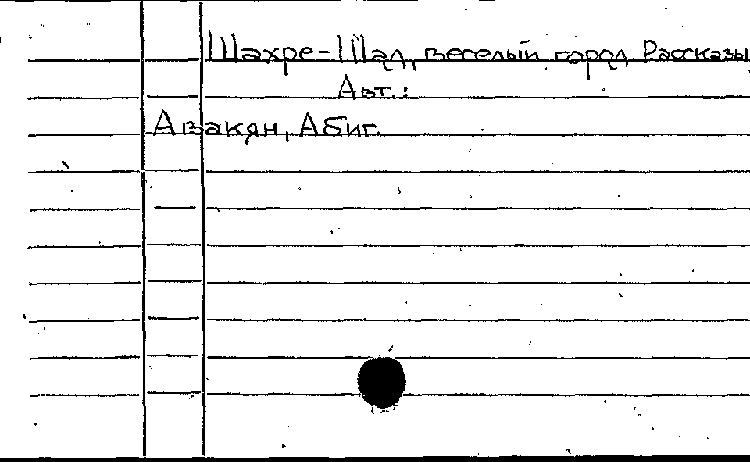 Шахре-Шад, веселый город. Рассказы
Авт.:
Авакян, Абиг.